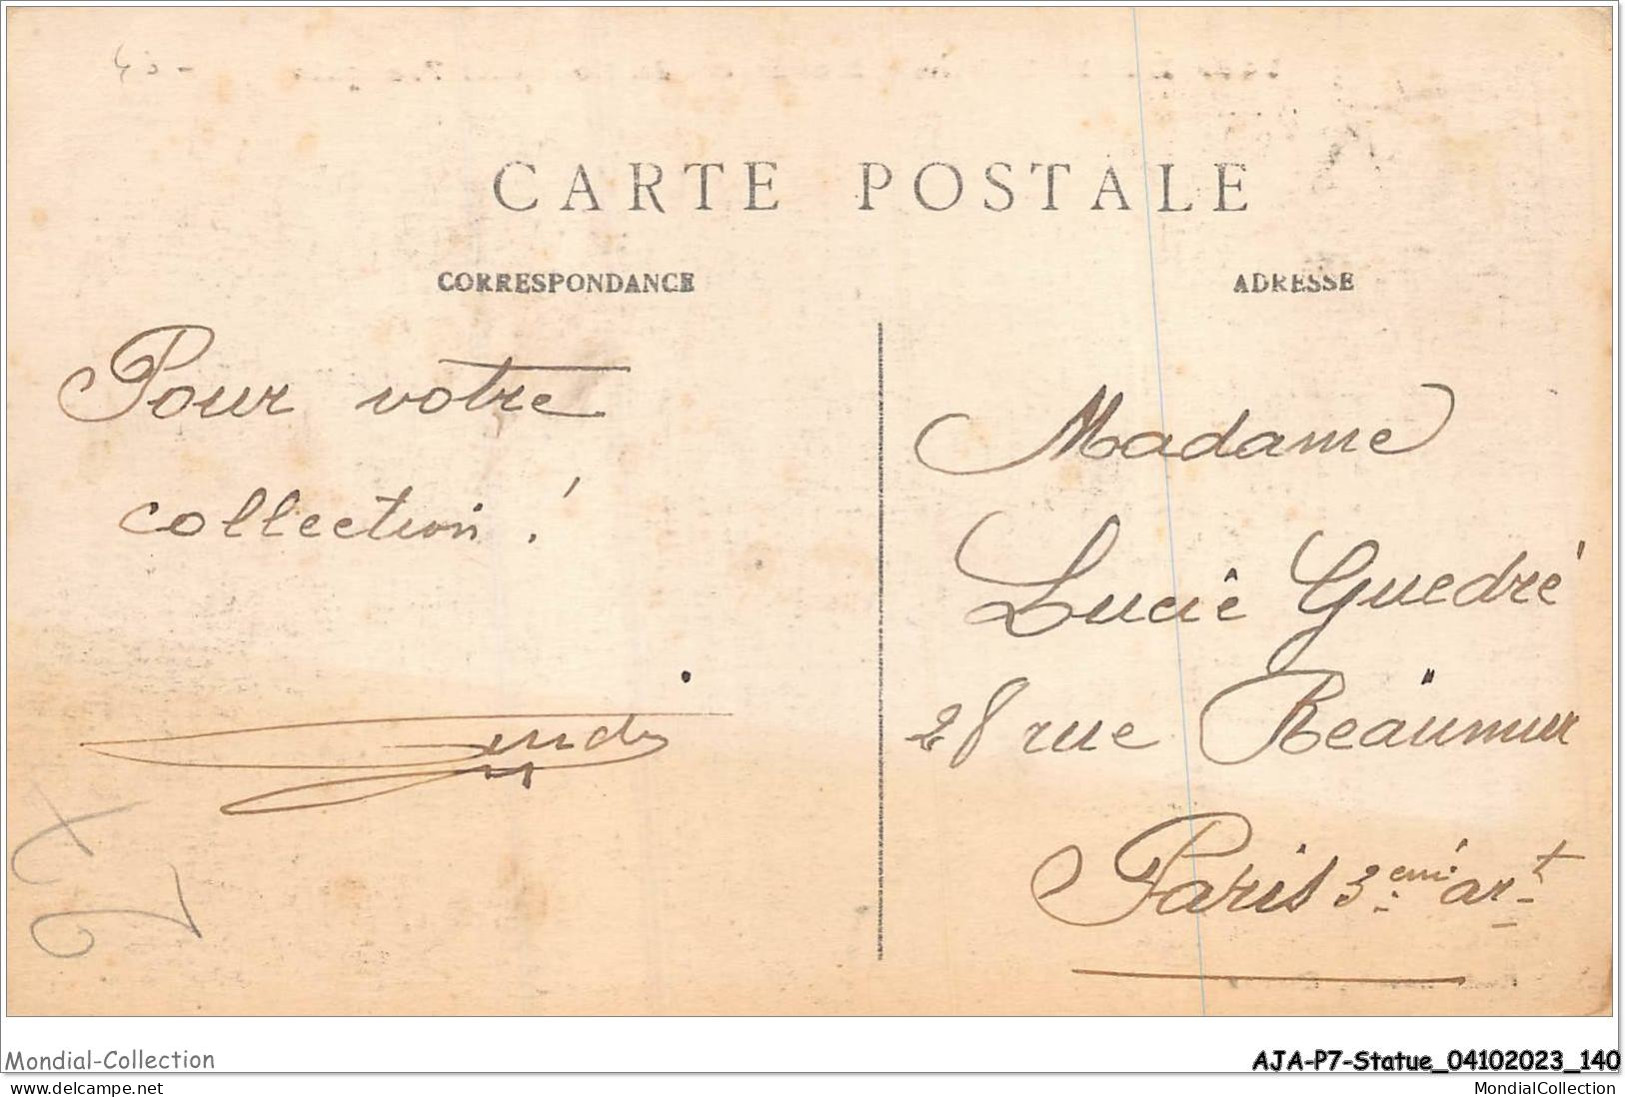 CARTE POSTALE
CORRESPONDANCE
ADRESSE
Pour votre
collection !
Madame
Lucie Guedré
28 rue Réaumur
Paris 3eme art
Mondial-Collection
AJA-P7-Statue_04102023_140
www.delcampe.net
MondialCollection